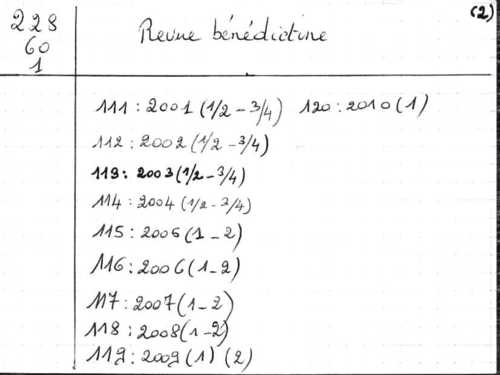 228
60
1
Revue bénédictine
(2)
111 : 2001 (1/2 - 3/4) 120 : 2010 (1)
112 : 2002 (1/2 - 3/4)
113 : 2003 (1/2 - 3/4)
114 : 2004 (1/2 - 3/4)
115 : 2005 (1 - 2)
116 : 2006 (1 - 2)
117 : 2007 (1 - 2)
118 : 2008 (1 - 2)
119 : 2009 (1) (2)